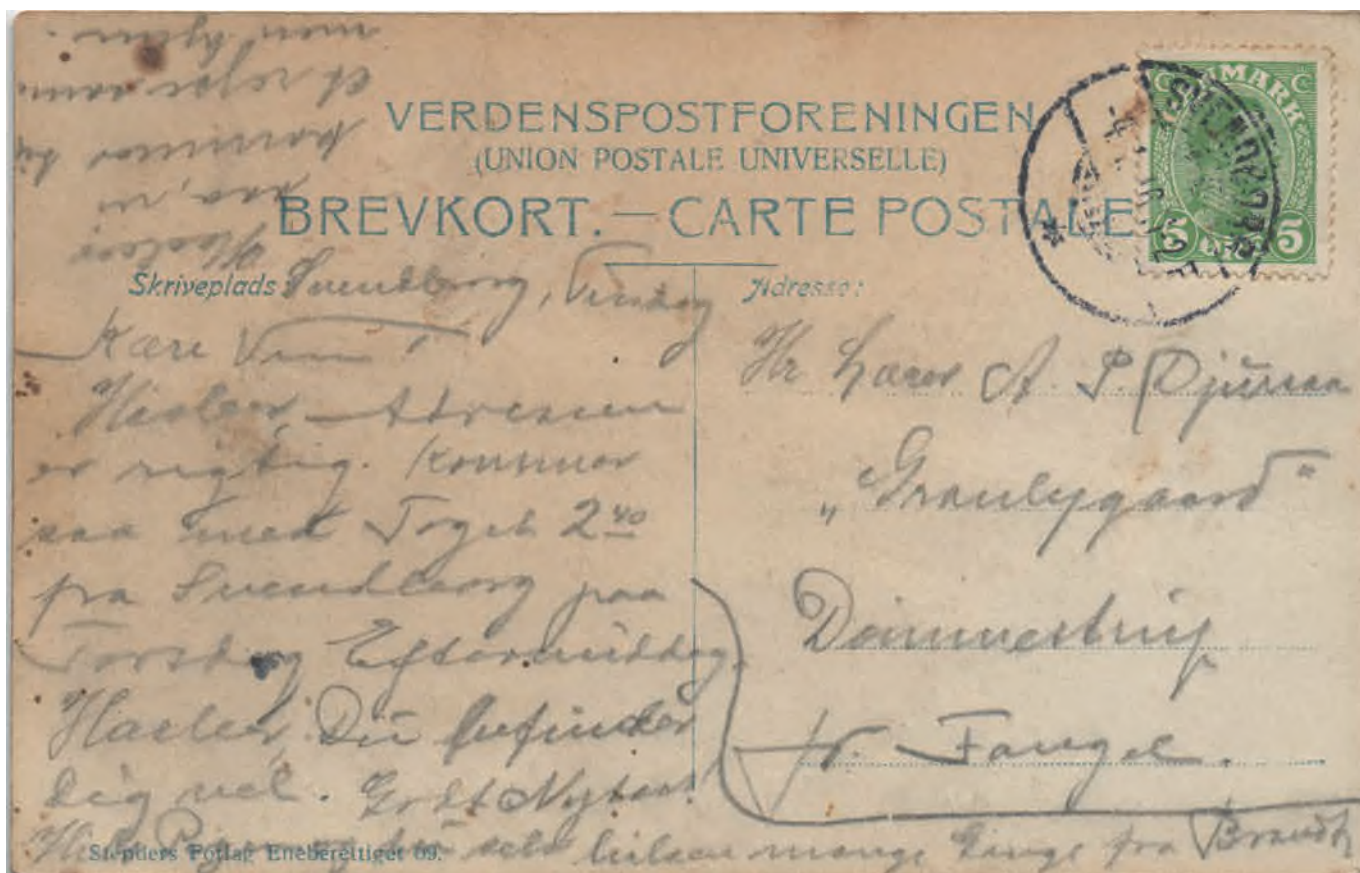 VERDENSPOSTFORENINGEN
(UNION POSTALE UNIVERSELLE)
BREVKORT. — CARTE POSTALE
DANMARK
5 5
SVENDBORG
Skriveplads:
Svendborg, Tirsdag
Kære Ven!
Adressen
er rigtig. Kommer
saa med Toget 2 40
fra Svendborg paa
Torsdag Eftermiddag.
Haaber Du befinder
dig vel. Godt Nytaar!
selv hilsen mange Gange fra Brandt
Haaber
saa, vi
kommer til
at rejse samme
men hjem.
Adresse:
Hr Lærer A. P. Djursaa
„Granlygaard“
Dømmestrup
pr. Fangel.
Stenders Forlag Eneberettiget 69.